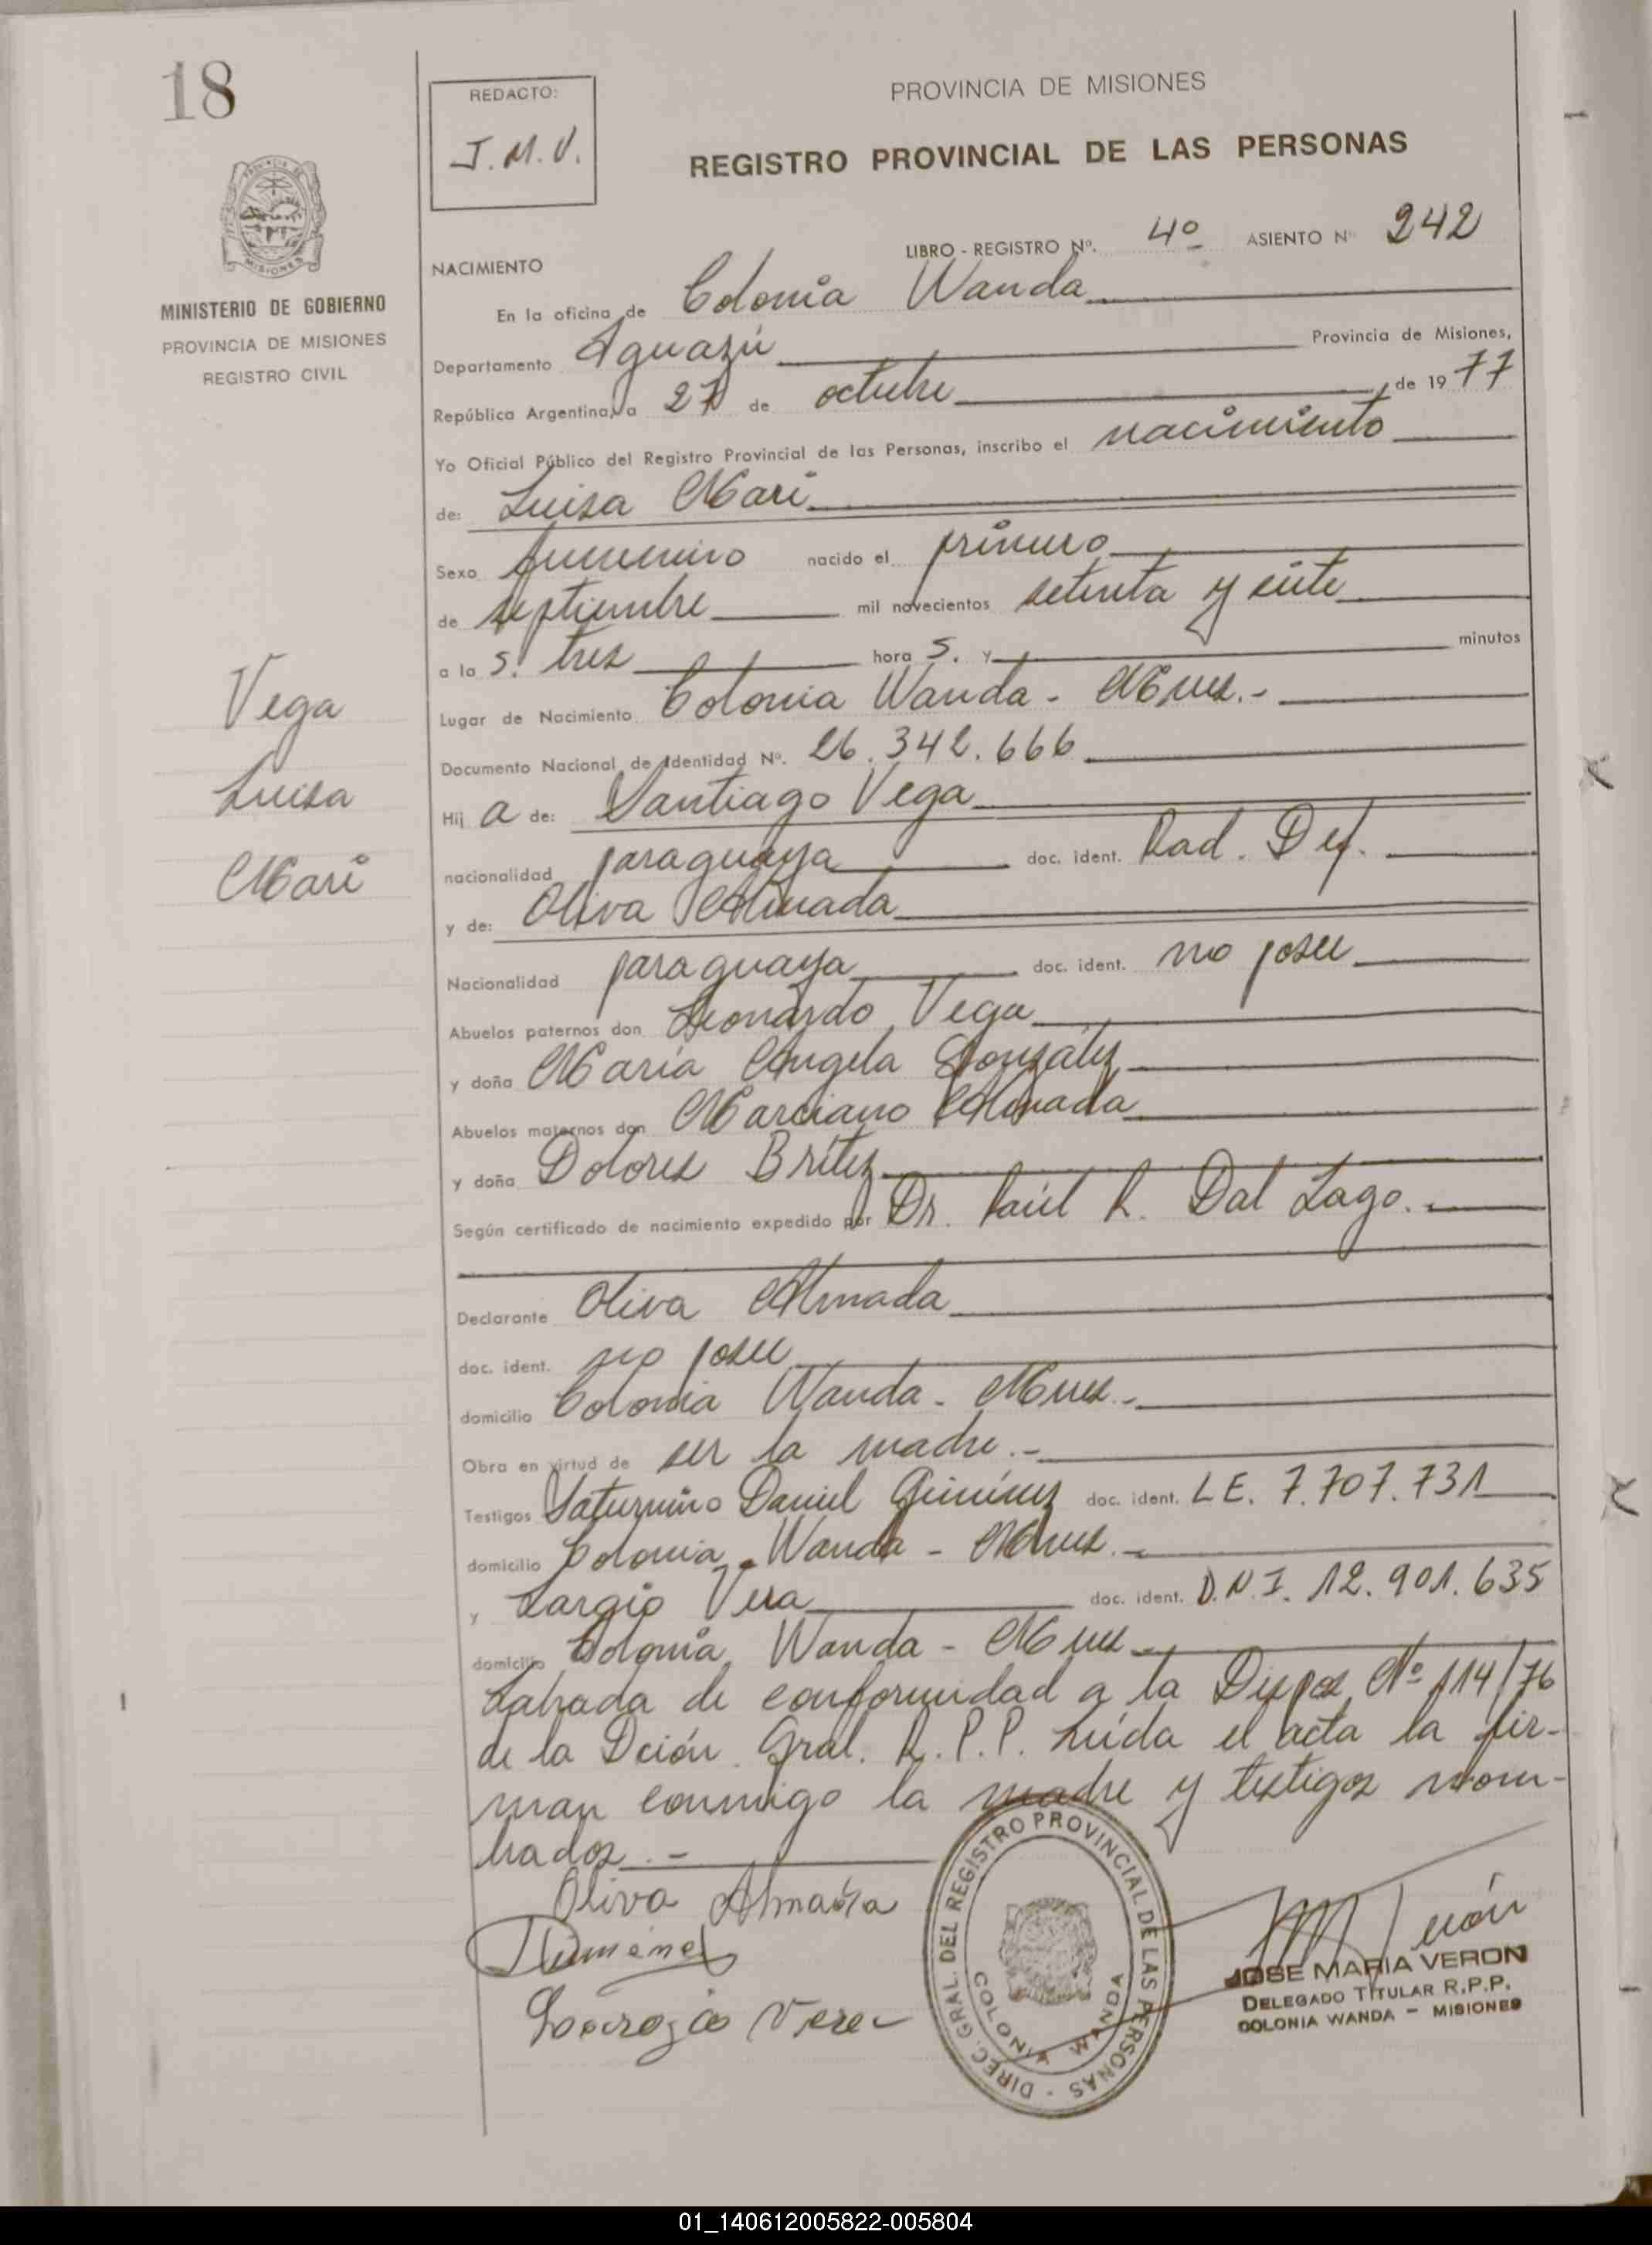 18
REDACTO:
J.M.V.
PROVINCIA DE MISIONES
REGISTRO PROVINCIAL DE LAS PERSONAS
MINISTERIO DE GOBIERNO
PROVINCIA DE MISIONES
REGISTRO CIVIL
LIBRO - REGISTRO Nº. 4º ASIENTO Nº 242
NACIMIENTO
En la oficina de Colonia Wanda
Departamento Iguazú Provincia de Misiones,
República Argentina, a 27 de octubre de 1977
Yo Oficial Público del Registro Provincial de las Personas, inscribo el nacimiento
de: Luisa Mari
Sexo femenino nacido el primero
de septiembre mil novecientos setenta y siete
a la s. tres hora s. y minutos
Lugar de Nacimiento Colonia Wanda - Mnes.-
Documento Nacional de Identidad Nº. 26.342.666
Hij a de: Santiago Vega
nacionalidad paraguaya doc. ident. Rad. Def.
y de: Oliva Almada
Nacionalidad paraguaya doc. ident. no posee
Abuelos paternos don Leonardo Vega
y doña María Angela González
Abuelos maternos don Marciano Almada
y doña Dolores Brítez
Según certificado de nacimiento expedido por Dr. Raúl R. Dal Lago.-
Declarante Oliva Almada
doc. ident. no posee
domicilio Colonia Wanda - Mnes.-
Obra en virtud de ser la madre.-
Testigos Saturnino Daniel Giménez doc. ident. L.E. 7.707.731
domicilio Colonia Wanda - Mnes.-
y Sargio Vera doc. ident. D.N.I. 12.901.635
domicilio Colonia Wanda - Mnes.-
Labrada de conformidad a la Dispos. Nº 114/76
de la Dción. Gral. R.P.P. Leída el acta la fir-
man conmigo la madre y testigos nom-
brados.-
Vega
Luisa
Mari
Oliva Almada
DIREC. GRAL. DEL REGISTRO PROVINCIAL DE LAS PERSONAS
COLONIA WANDA
JOSE MARIA VERON
DELEGADO TITULAR R.P.P.
COLONIA WANDA - MISIONES
01_140612005822-005804